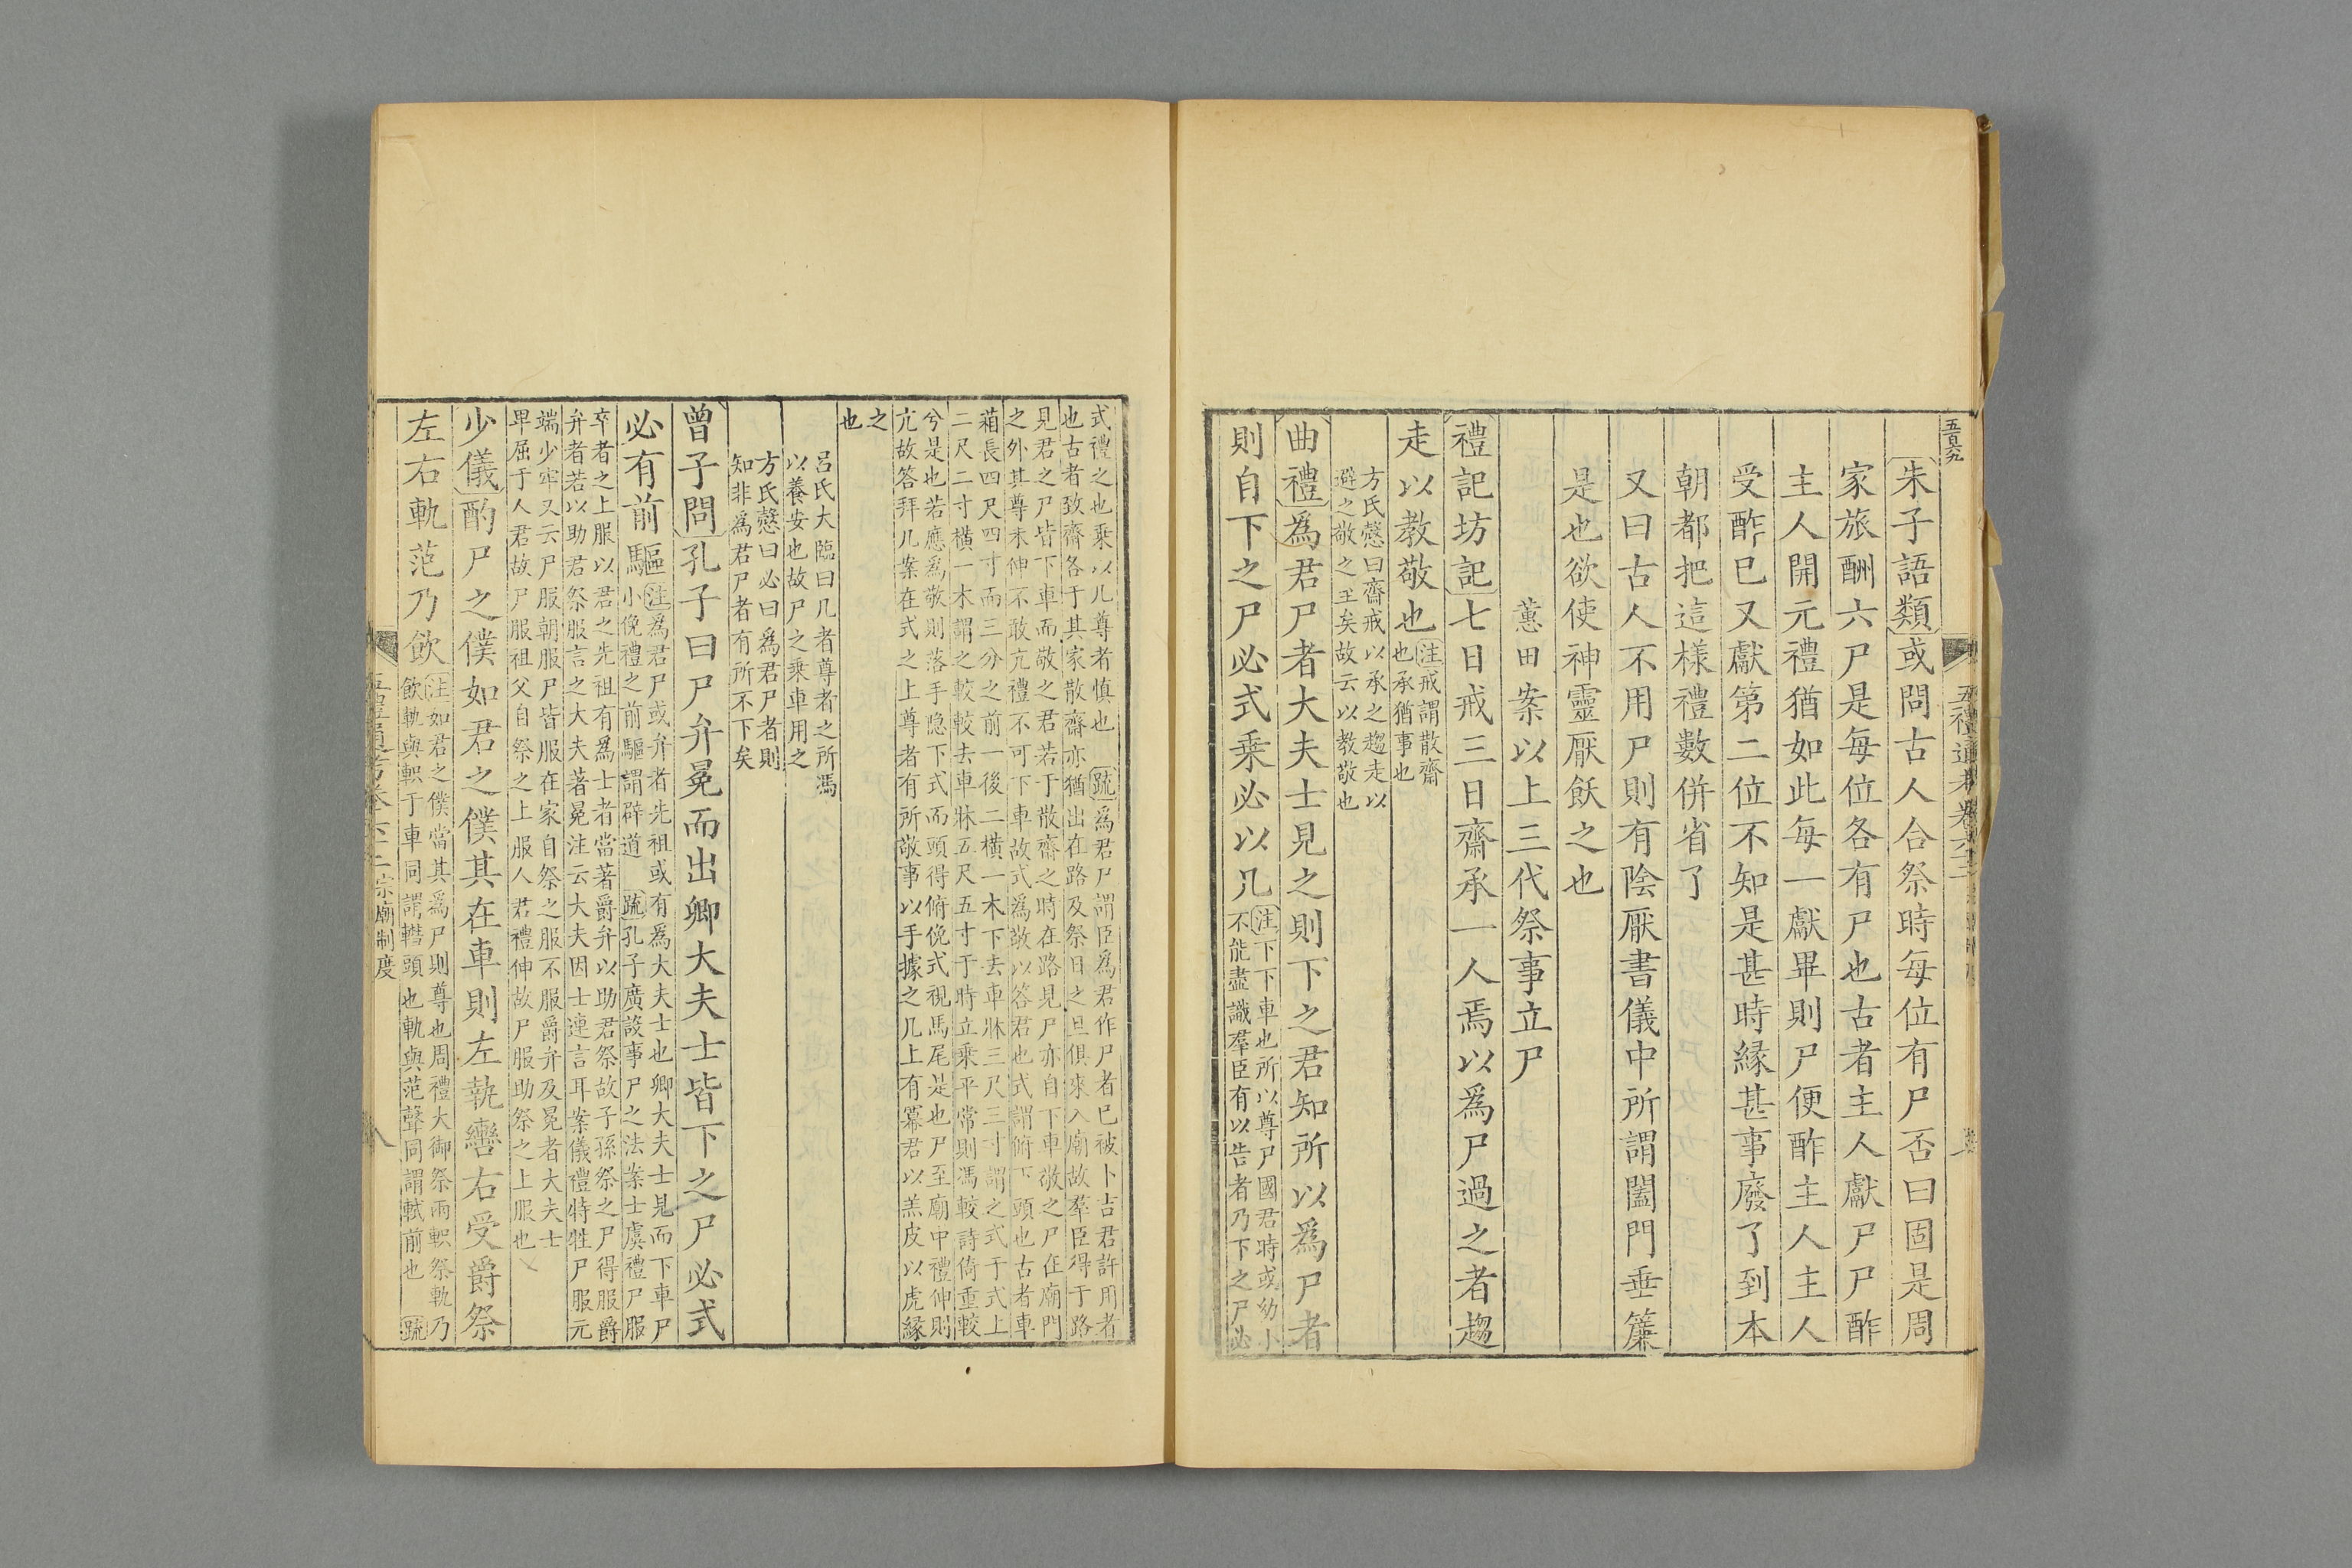 五百六九
五禮通考卷六十二
朱子語類或問古人合祭時每位有尸否曰固是周
家旅酬六尸是每位各有尸也古者主人獻尸尸酢
主人開元禮猶如此每一獻畢則尸便酢主人主人
受酢已又獻第二位不知是甚時緣甚事廢了到本
朝都把這樣禮數併省了
又曰古人不用尸則有陰厭書儀中所謂闔門垂簾
是也欲使神靈厭飫之也
蕙田案以上三代祭事立尸
禮記坊記七日戒三日齋承一人焉以爲尸過之者趨
走以教敬也注戒謂散齋
也承猶事也
方氏慤曰齋戒以承之趨走以
避之敬之至矣故云以教敬也
曲禮爲君尸者大夫士見之則下之君知所以爲尸者
則自下之尸必式乘必以几注下下車也所以尊尸國君時或幼小
不能盡識羣臣有以告者乃下之尸必
式禮之也乘以几尊者慎也 疏爲君尸謂臣爲君作尸者已被卜吉君許用者
也古者致齋各于其家散齋亦猶出在路及祭日之旦俱來入廟故羣臣得于路
見君之尸皆下車而敬之君若于散齋之時在路見尸亦自下車敬之尸在廟門
之外其尊未伸不敢亢禮不可下車故式爲敬以答君也式謂俯下頭也古者車
箱長四尺四寸而三分之前一後二橫一木下去車牀三尺三寸謂之式于式上
二尺二寸橫一木謂之較較去車牀五尺五寸于時立乘平常則馮較詩倚重較
兮是也若應爲敬則落手隐下式而頭得俯俛式視馬尾是也尸至廟中禮伸則
亢故答拜几案在式之上尊者有所敬事以手據之几上有冪君以羔皮以虎緣
之
也
呂氏大臨曰几者尊者之所馮
以養安也故尸之乘車用之
方氏慤曰必曰爲君尸者則
知非爲君尸者有所不下矣
曾子問孔子曰尸弁冕而出卿大夫士皆下之尸必式
必有前驅注爲君尸或弁者先祖或有爲大夫士也卿大夫士見而下車尸
小俛禮之前驅謂辟道 疏孔子廣設事尸之法案士虞禮尸服
卒者之上服以君之先祖有爲士者當著爵弁以助君祭故子孫祭之尸得服爵
弁者若以助君祭服言之大夫著冕注云大夫因士連言耳案儀禮特牲尸服元
端少牢又云尸服朝服尸皆服在家自祭之服不服爵弁及冕者大夫士
卑屈于人君故尸服祖父自祭之上服人君禮伸故尸服助祭之上服也
少儀酌尸之僕如君之僕其在車則左執轡右受爵祭
左右軌范乃飲注如君之僕當其爲尸則尊也周禮大御祭兩軹祭軌乃
飲軌與軹于車同謂轊頭也軌與范聲同謂軾前也 疏
宗廟制度
八